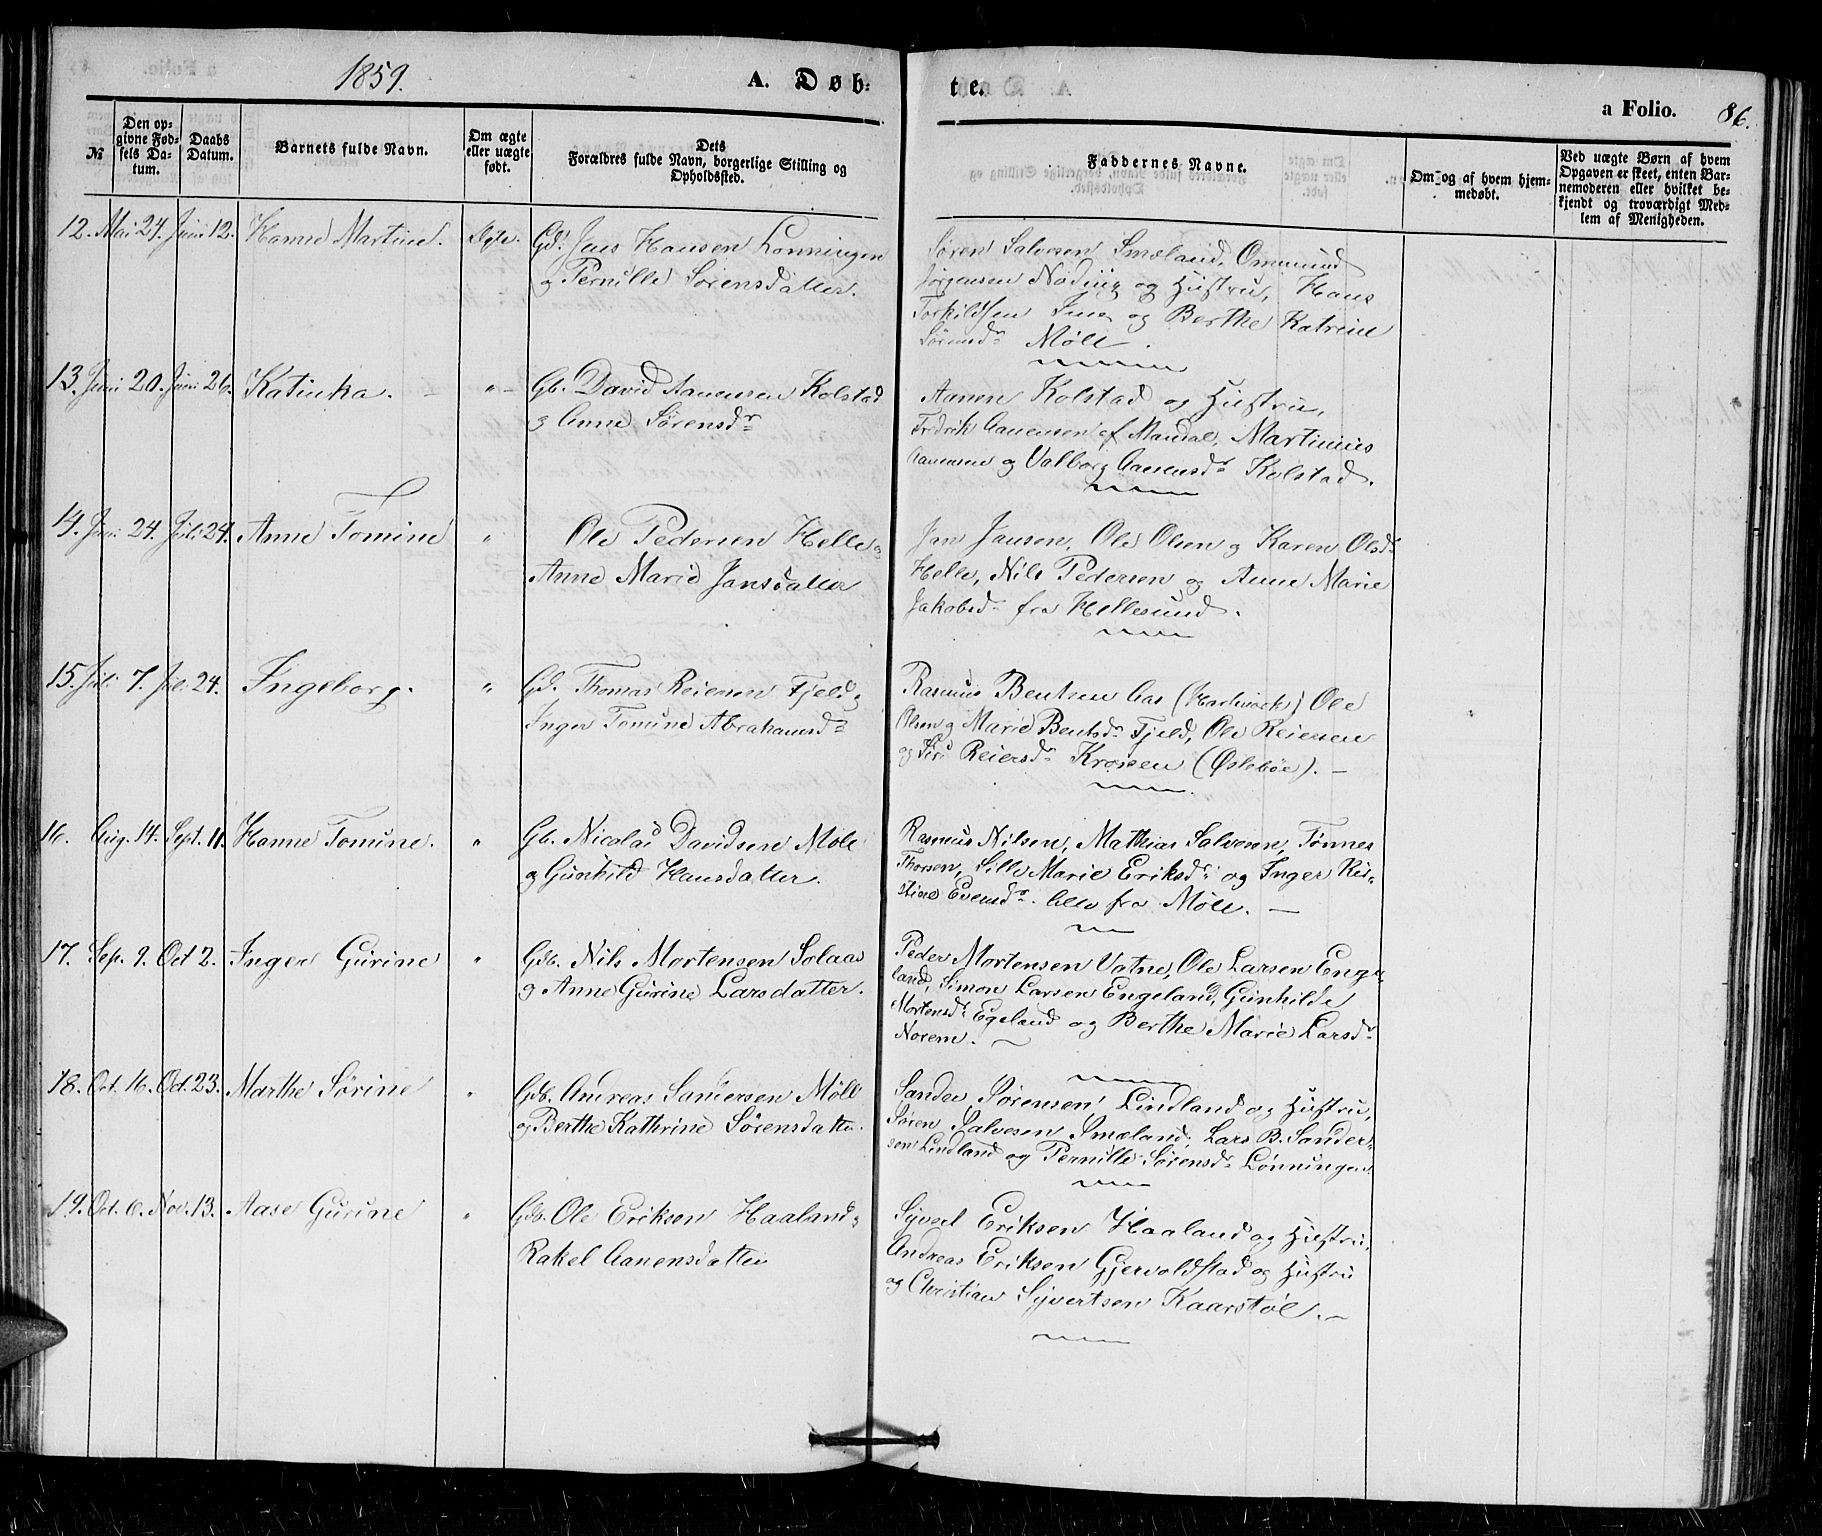 1859.
A. Døb-
te.
a Folio. 86.
№
Den op-
givne Fød-
sels Da-
tum.
Daabs
Datum.
Barnets fulde Navn.
Om ægte
eller uægte
født.
Dets
Forældres fulde Navn, borgerlige Stilling og
Opholdssted.
Faddernes Navne.
Om og af hvem hjem-
medøbt.
Ved uægte Børn af hvem
Opgaven er skeet, enten Bar-
nemoderen eller hvilket be-
kjendt og troværdigt Med-
lem af Menigheden.
12. Mai 27. Juni 12. Hanne Martine. Ægte. Gd. Jens Hansen Lønningen
og Pernille Sørensdatter.
Søren Salvesen Smæland, Ommund
Jørgensen Nøding og Hustru, Hans
Torkildsen og Berthe Katrine
Sørensdr Møll.
13. Juni 20. Juni 26. Katinka. " Gb. David Aanensen Kolstad
og Anne Sørensdr
Aanen Kolstad og Hustru,
Fredrik Aanensen af Mandal, Martinius
Aanensen og Valborg Aanensdr Kolstad.
14. Juni 24. Juli 24. Anne Tomine " Ole Pedersen Helle og
Anne Marie Jansdatter
Jan Jansen, Ole Olsen og Karen Olsdr
Helle, Nils Pedersen og Anne Marie
Jakobsd. fra Hellesund.
15. Juli 7. Juli 24. Ingeborg. " Gd. Thomas Reiersen Fjeld og
Inger Tomine Abrahamsdr
Rasmus Bentsen Aas (Hartmark) Ole
Olsen og Marie Bentsdr Fjeld, Ole Reiersen
og Siri Reiersdr Krossen (Øslebøe). —
16. Aug. 14. Sept. 11. Hanne Tomine. " Gb. Nicolai Davidsen Møll
og Gunhild Hansdatter.
Rasmus Nilsen, Mathias Salvesen, Tønnes
Thorsen, Sille Marie Eriksdr og Inger Kri-
stine Evensdr. alle fra Møll. —
17. Sep. 9. Oct 2. Inger Gurine " Gdb. Nils Mortensen Solaas
og Anne Gurine Larsdatter.
Peder Mortensen Vatne, Ole Larsen Enge-
land, Simon Larsen Engeland, Gunhilde
Mortensdr Egeland og Berthe Marie Larsdr
Norem.
18. Oct. 16. Oct. 23. Marthe Sørine " Gdb. Andreas Sandersen Møll
og Berthe Kathrine Sørensdatter.
Sander Sørensen Lindland og Hustru,
Søren Salvesen Smæland, Lars B. Sander-
sen Lindland og Pernille Sørensdr Lønningen.
19. Oct. 6. Nov. 13. Aase Gurine " Gdb. Ole Eriksen Haaland og
Rakel Aanensdatter
Syvert Eriksen Haaland og Hustru,
Andreas Eriksen Gjervoldstad og Hustru
og Christian Syvertsen Kaarstøl. —